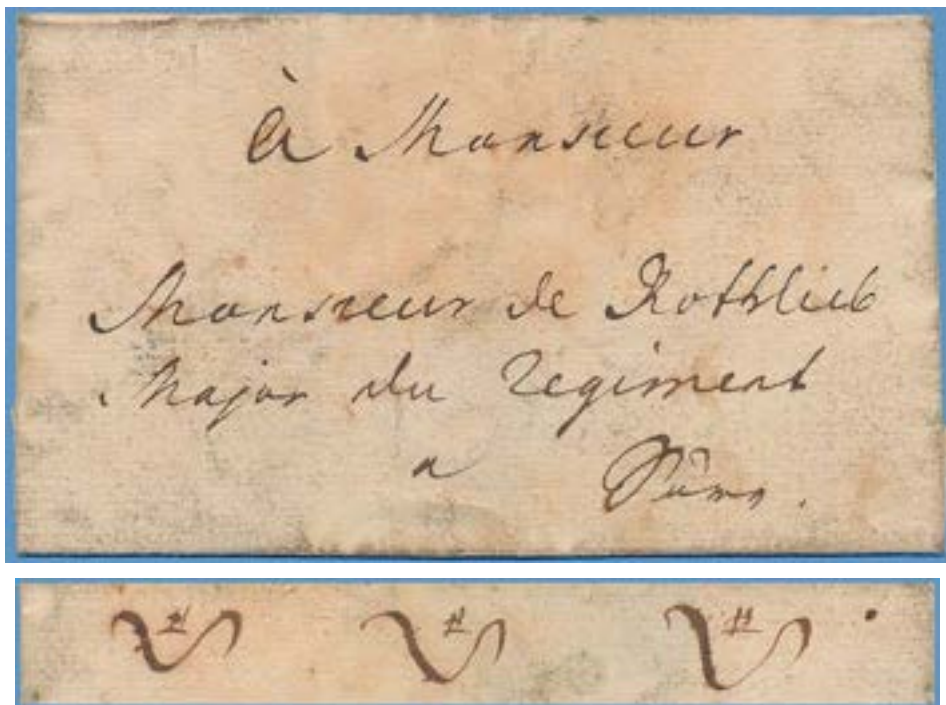 à Monsieur
Monsieur de Rothlieb
Major du Regiment
a